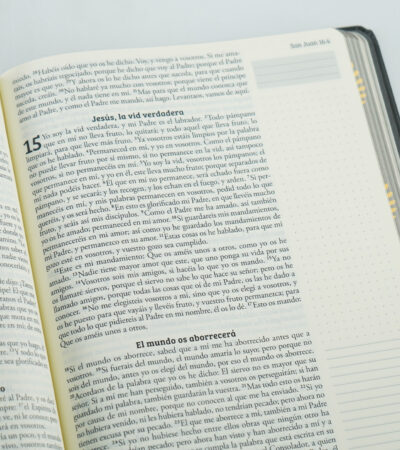 San Juan 16:4
mundo. ²⁸Habéis oído que yo os he dicho: Voy, y vengo a vosotros. Si me ama-
rais, os habríais regocijado, porque he dicho que voy al Padre; porque el Padre
mayor es que yo. ²⁹Y ahora os lo he dicho antes que suceda, para que cuando
suceda, creáis. ³⁰No hablaré ya mucho con vosotros; porque viene el príncipe
de este mundo, y él nada tiene en mí. ³¹Mas para que el mundo conozca que
amo al Padre, y como el Padre me mandó, así hago. Levantaos, vamos de aquí.
Jesús, la vid verdadera
15 Yo soy la vid verdadera, y mi Padre es el labrador. ²Todo pámpano
que en mí no lleva fruto, lo quitará; y todo aquel que lleva fruto, lo
limpiará, para que lleve más fruto. ³Ya vosotros estáis limpios por la palabra
que os he hablado. ⁴Permaneced en mí, y yo en vosotros. Como el pámpano
no puede llevar fruto por sí mismo, si no permanece en la vid, así tampoco
vosotros, si no permanecéis en mí. ⁵Yo soy la vid, vosotros los pámpanos; el
que permanece en mí, y yo en él, éste lleva mucho fruto; porque separados de
mí nada podéis hacer. ⁶El que en mí no permanece, será echado fuera como
pámpano, y se secará; y los recogen, y los echan en el fuego, y arden. ⁷Si per-
manecéis en mí, y mis palabras permanecen en vosotros, pedid todo lo que
queréis, y os será hecho. ⁸En esto es glorificado mi Padre, en que llevéis mucho
fruto, y seáis así mis discípulos. ⁹Como el Padre me ha amado, así también
yo os he amado; permaneced en mi amor. ¹⁰Si guardareis mis mandamientos,
permaneceréis en mi amor; así como yo he guardado los mandamientos de
mi Padre, y permanezco en su amor. ¹¹Estas cosas os he hablado, para que mi
gozo esté en vosotros, y vuestro gozo sea cumplido.
¹²Este es mi mandamiento: Que os améis unos a otros, como yo os he
amado. ¹³Nadie tiene mayor amor que este, que uno ponga su vida por sus
amigos. ¹⁴Vosotros sois mis amigos, si hacéis lo que yo os mando. ¹⁵Ya no
os llamaré siervos, porque el siervo no sabe lo que hace su señor; pero os he
llamado amigos, porque todas las cosas que oí de mi Padre, os las he dado a
conocer. ¹⁶No me elegisteis vosotros a mí, sino que yo os elegí a vosotros, y
os he puesto para que vayáis y llevéis fruto, y vuestro fruto permanezca; para
que todo lo que pidiereis al Padre en mi nombre, él os lo dé. ¹⁷Esto os mando:
Que os améis unos a otros.
El mundo os aborrecerá
¹⁸Si el mundo os aborrece, sabed que a mí me ha aborrecido antes que a
vosotros. ¹⁹Si fuerais del mundo, el mundo amaría lo suyo; pero porque no
sois del mundo, antes yo os elegí del mundo, por eso el mundo os aborrece.
²⁰Acordaos de la palabra que yo os he dicho: El siervo no es mayor que su
señor. Si a mí me han perseguido, también a vosotros os perseguirán; si han
guardado mi palabra, también guardarán la vuestra. ²¹Mas todo esto os harán
por causa de mi nombre, porque no conocen al que me ha enviado. ²²Si yo
no hubiera venido, ni les hubiera hablado, no tendrían pecado; pero ahora no
tienen excusa por su pecado. ²³El que me aborrece a mí, también a mi Padre
aborrece. ²⁴Si yo no hubiese hecho entre ellos obras que ningún otro ha